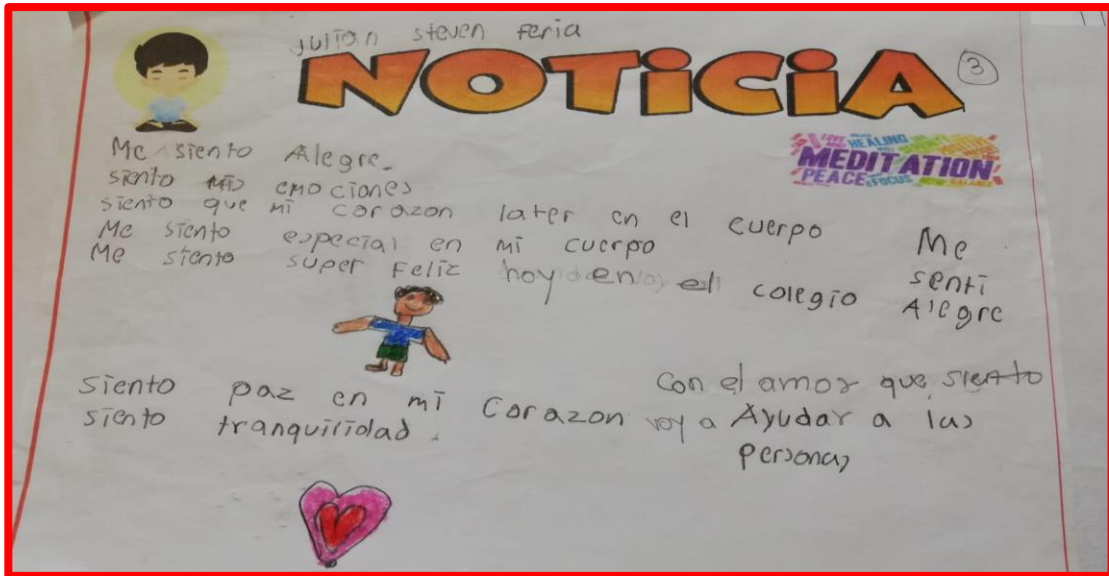 Julian steven feria
NOTiCiA
3
LOVE HEALING
MEDITATION
PEACE FOCUS NOW BALANCE
Me siento Alegre.
siento mis emociones
siento que mi corazon later en el cuerpo
Me siento especial en mi cuerpo
Me siento super Feliz hoy en el colegio
Me
senti
Alegre
siento paz en mi corazon
siento tranquilidad.
con el amor que siento
voy a Ayudar a las
personas